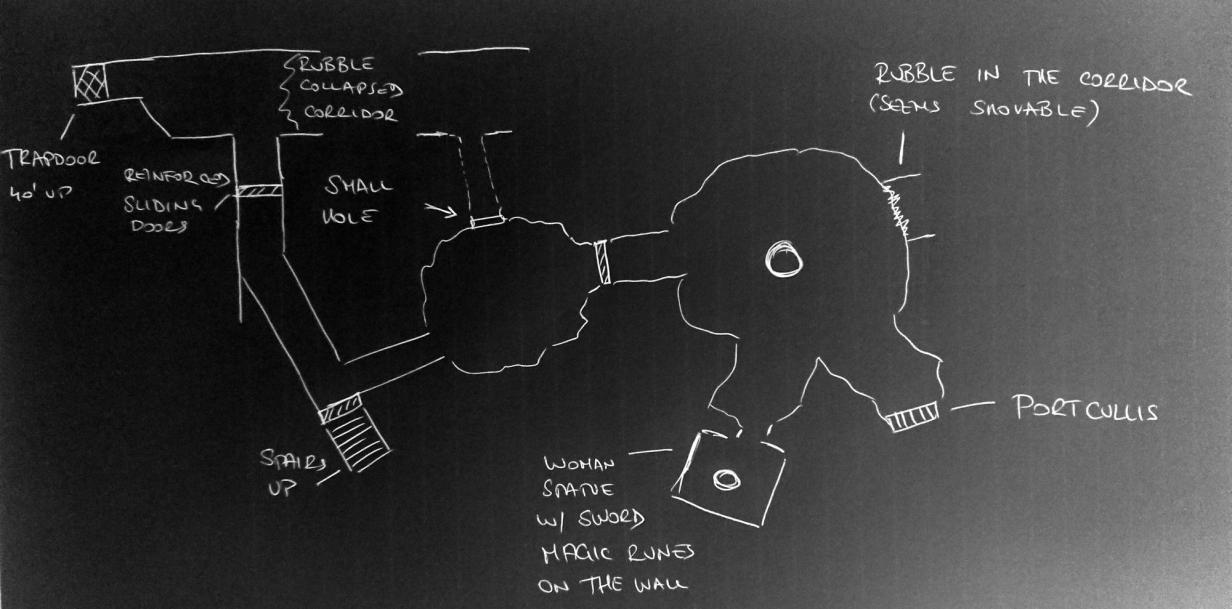 RUBBLE
COLLAPSED
CORRIDOR
RUBBLE IN THE CORRIDOR
(SEEMS SHOVABLE)
TRAPDOOR
40' UP
REINFORCED
SLIDING
DOORS
SMALL
HOLE
PORTCULLIS
STAIRS
UP
WOMAN
STATUE
W/ SWORD
MAGIC RUNES
ON THE WALL